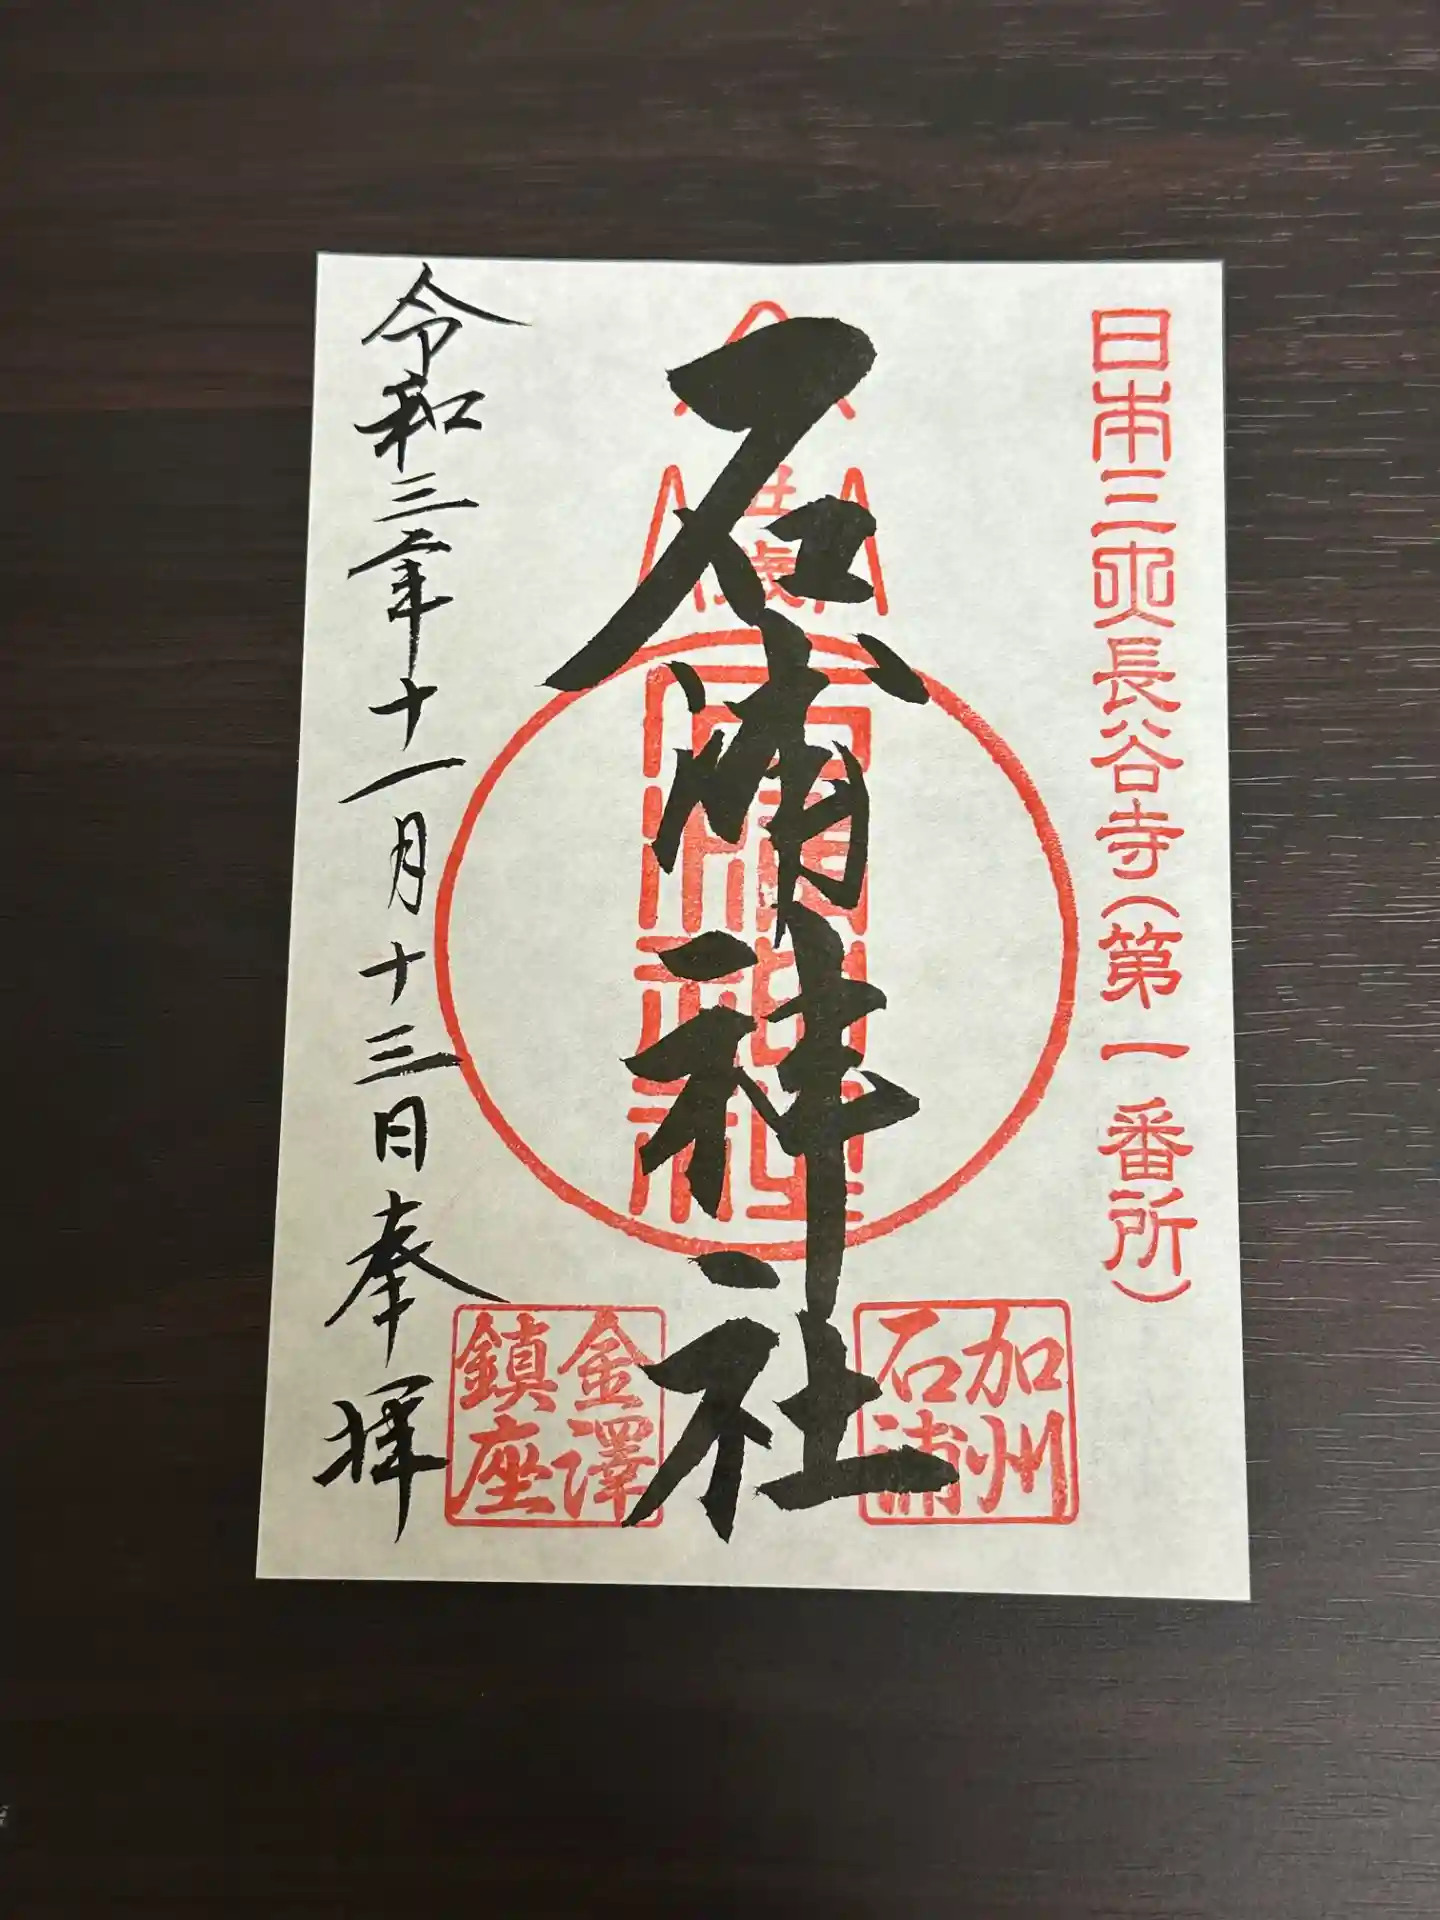 日本三大長谷寺(第一番所)
加州
石浦
石浦神社
金澤
鎮座
令和三年十一月十三日奉拝